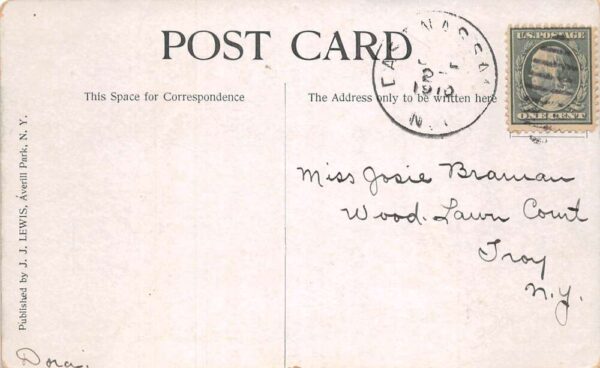 POST CARD
This Space for Correspondence
The Address only to be written here
EAST NASSAU
N.Y.
1910
U.S. POSTAGE
ONE CENT
Miss Josie Braman
Wood-Lawn Court
Troy
N.Y.
Published by J. J. LEWIS, Averill Park, N. Y.
Dora.